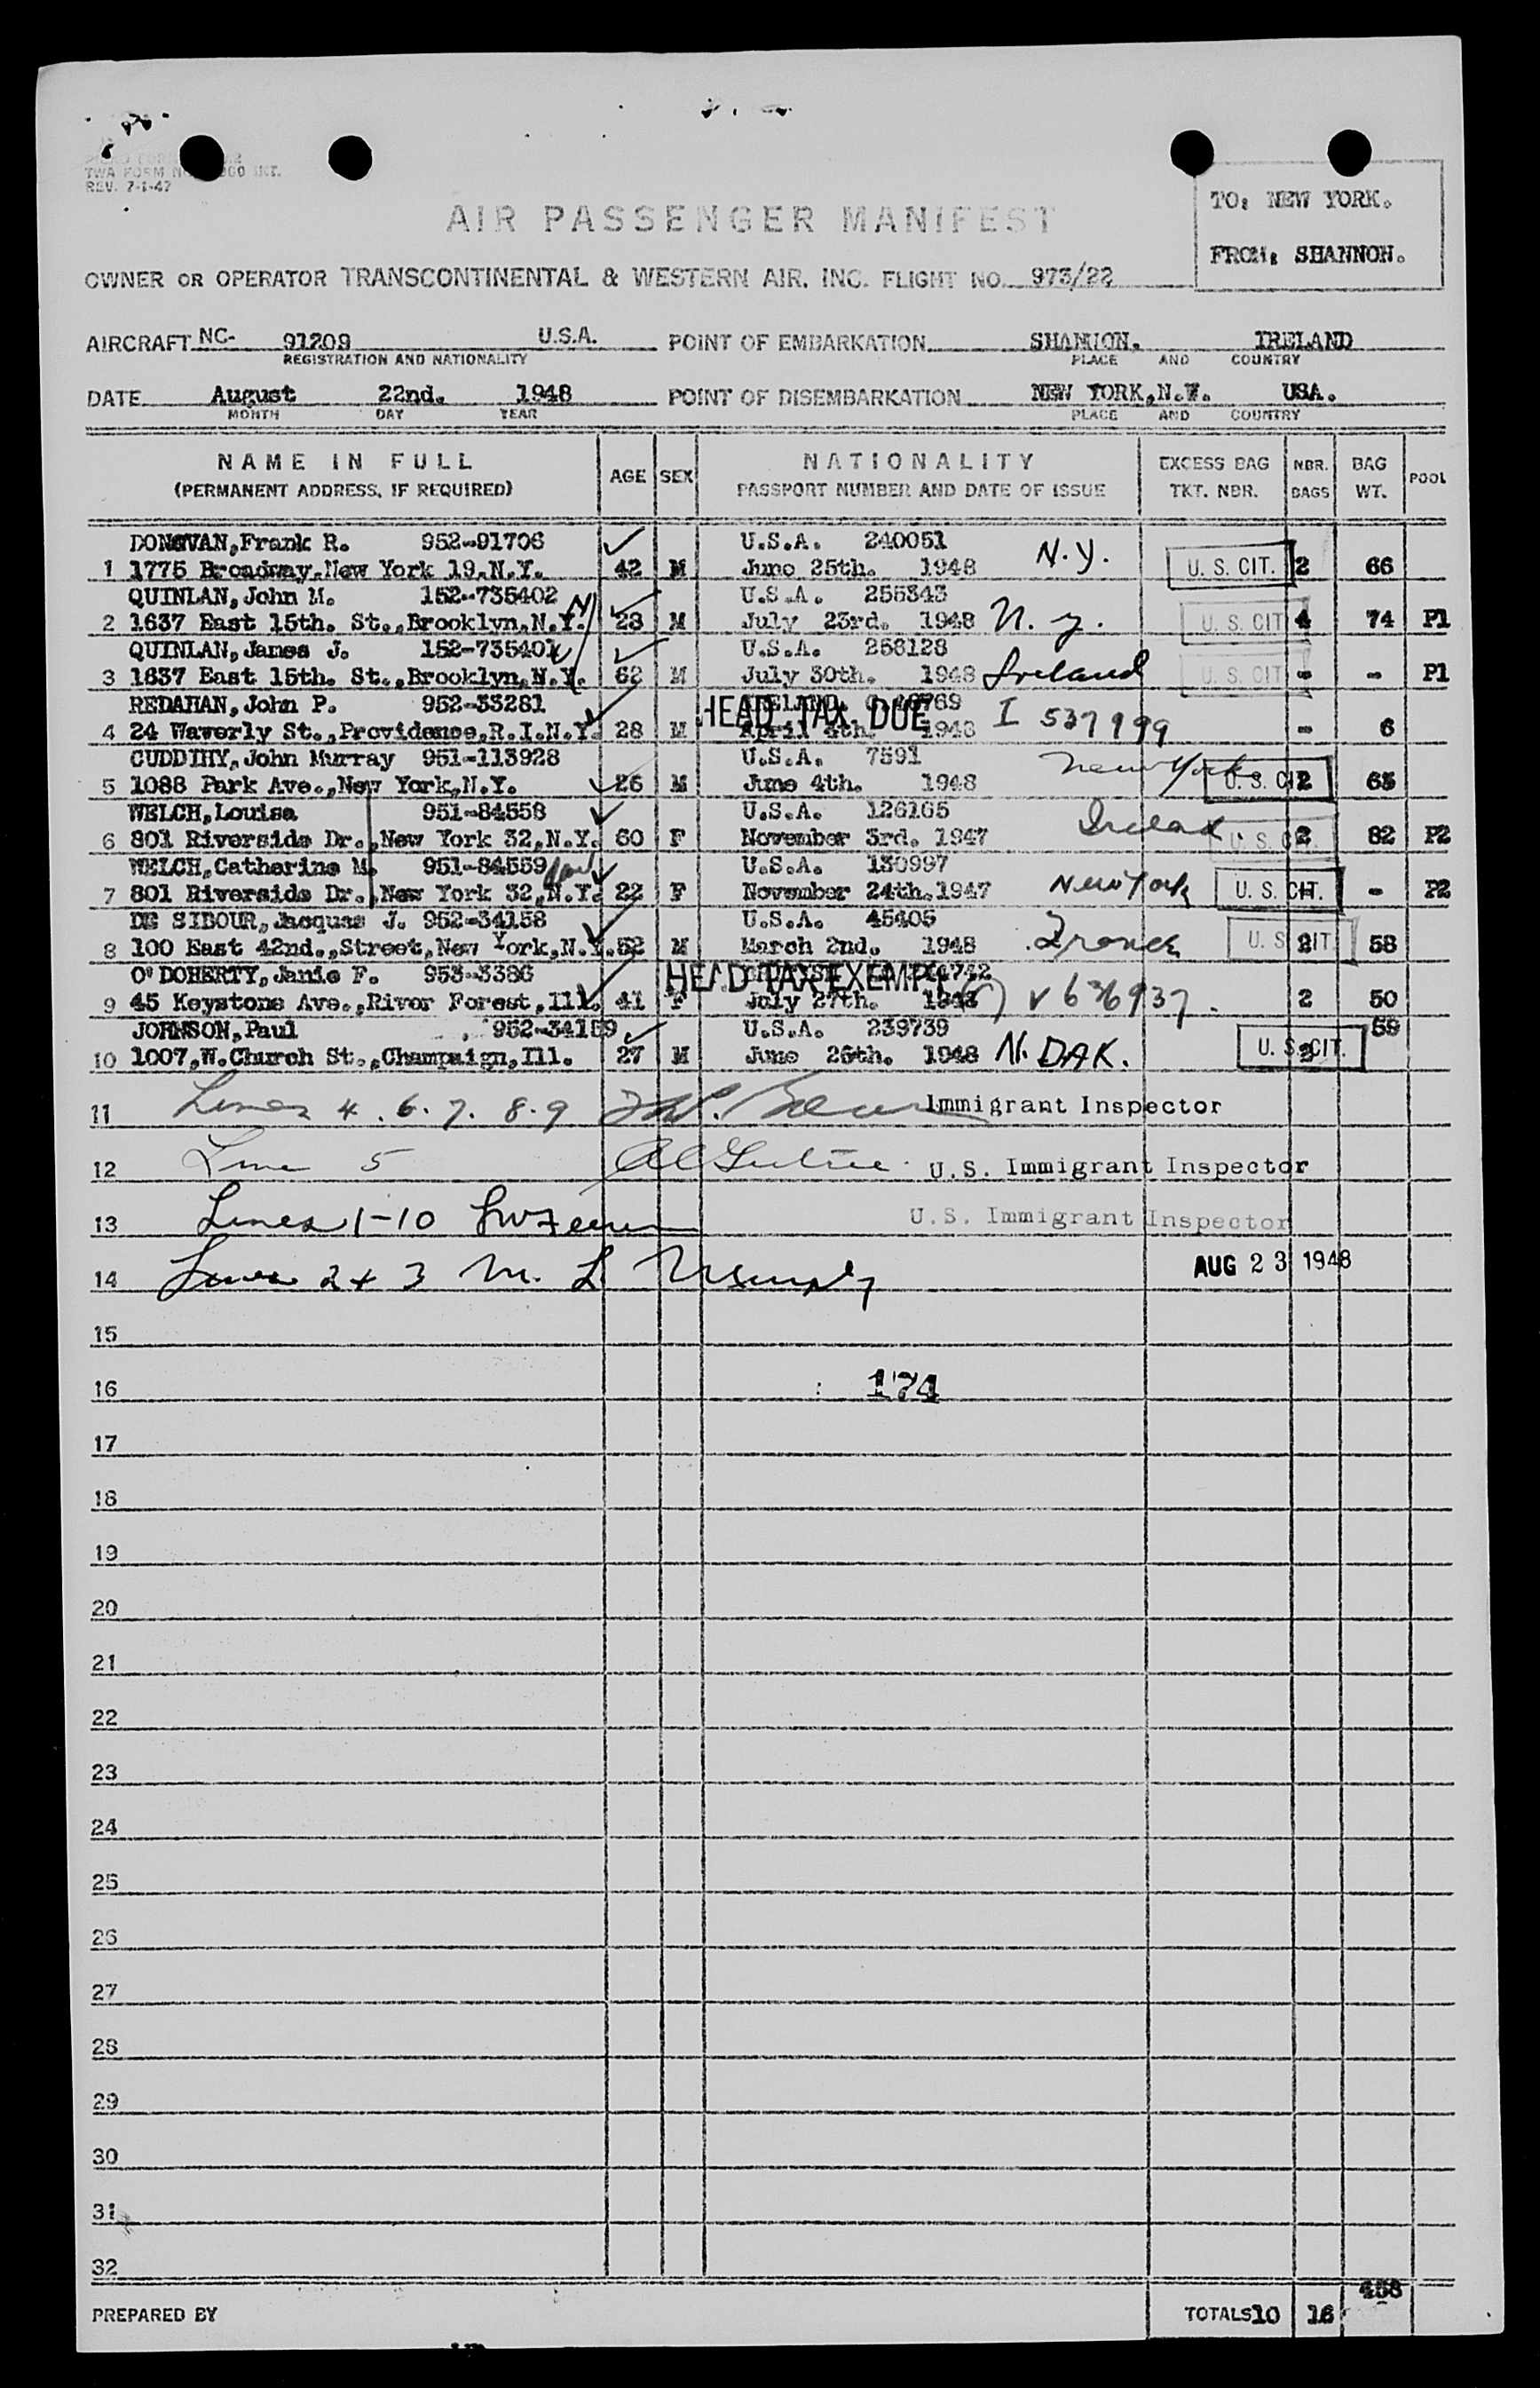 TWA FORM NO
REV. 7-1-47
TO: NEW YORK.
FROM: SHANNON.
AIR PASSENGER MANIFEST
OWNER OR OPERATOR TRANSCONTINENTAL & WESTERN AIR, INC. FLIGHT NO. 973/22
AIRCRAFT NC- 91209 U.S.A. POINT OF EMBARKATION SHANNON. IRELAND
REGISTRATION AND NATIONALITY PLACE AND COUNTRY
DATE August 22nd. 1948 POINT OF DISEMBARKATION NEW YORK,N.Y. USA.
MONTH DAY YEAR PLACE AND COUNTRY
NAME IN FULL AGE SEX NATIONALITY EXCESS BAG NBR. BAG POOL
(PERMANENT ADDRESS, IF REQUIRED) PASSPORT NUMBER AND DATE OF ISSUE TKT. NBR. BAGS WT.
DONOVAN,Frank R. 952-91706 U.S.A. 240051
1 1775 Broadway,New York 19,N.Y. 42 M June 25th. 1948 N.Y. U.S. CIT. 2 66
QUINLAN,John M. 152-735402 U.S.A. 255343
2 1637 East 15th. St.,Brooklyn,N.Y. 28 M July 23rd. 1948 N.Y. U.S. CIT 4 74 P1
QUINLAN,James J. 152-735401 U.S.A. 258128
3 1637 East 15th. St.,Brooklyn,N.Y. 62 M July 30th. 1948 Ireland U.S. CIT - - P1
REDAHAN,John P. 952-33281 IRELAND
HEAD TAX DUE
4 24 Waverly St.,Providence,R.I.N.Y. 28 M April 4th. 1948 I 537999 - 6
CUDDIHY,John Murray 951-113928 U.S.A. 7591
5 1088 Park Ave.,New York,N.Y. 26 M June 4th. 1948 New York U.S. CIT 2 63
WELCH,Louisa 951-84558 U.S.A. 126165
6 801 Riverside Dr.,New York 32,N.Y. 60 F November 3rd. 1947 Ireland U.S. CIT. 2 82 P2
WELCH,Catherine M. 951-84559 U.S.A. 130997
7 801 Riverside Dr.,New York 32,N.Y. 22 F November 24th.1947 New York U.S. CIT. - - P2
DE SIBOUR,Jacques J. 952-34158 U.S.A. 45405
8 100 East 42nd.,Street,New York,N.Y. 52 M March 2nd. 1948 France U.S. CIT. 2 58
O'DOHERTY,Janie F. 953-3386
HEAD TAX EXEMPT
9 45 Keystone Ave.,River Forest,Ill. 41 F July 27th. 1948 2 50
JOHNSON,Paul 952-34159 U.S.A. 239739 59
10 1007,W.Church St.,Champaign,Ill. 27 M June 26th. 1948 N. DAK. U.S. CIT. 2
11 Lines 4. 6. 7. 8. 9 Immigrant Inspector
12 Line 5 U.S. Immigrant Inspector
13 Lines 1-10 U.S. Immigrant Inspector
14 Lines 2 & 3 M. L. AUG 23 1948
15
16 174
17
18
19
20
21
22
23
24
25
26
27
28
29
30
31
32
458
PREPARED BY TOTALS 10 16